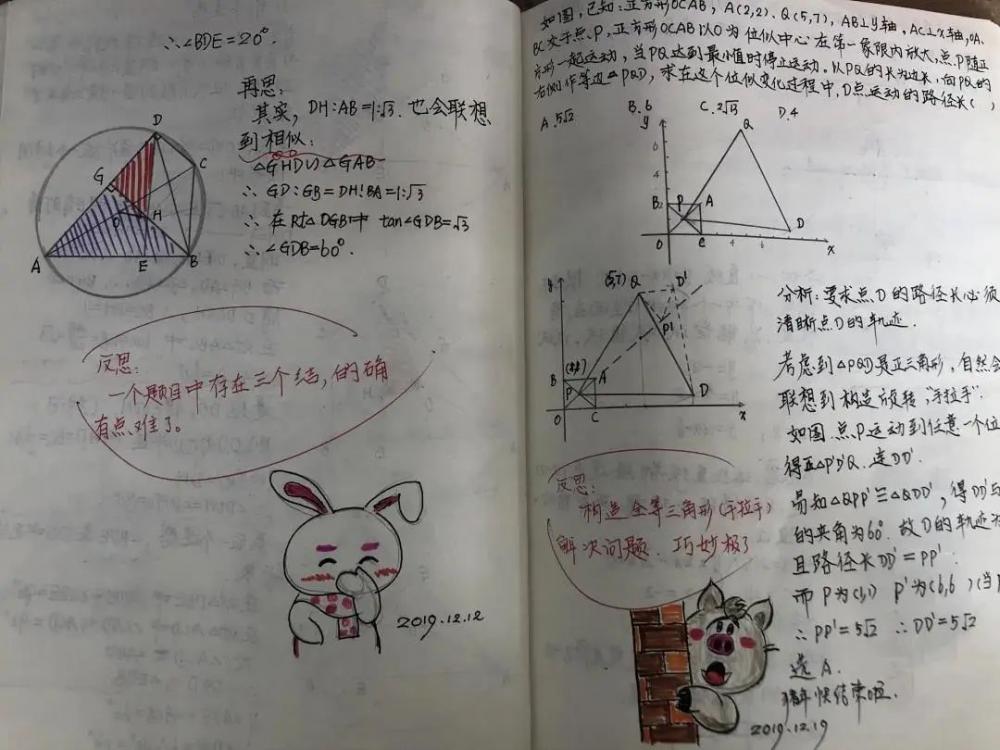 ∴∠BDE=20°.
再思:
其实, DH:AB=1:√3. 也会联想
到相似:
△GHD∽△GAB
∴ GD:GB=DH:BA=1:√3
∴ 在Rt△DGB中 tan∠GDB=√3
∴∠GDB=60°.
D
C
G
O
H
A
E
B
反思:
一个题目中存在三个结,的确
有点难了。
2019.12.12
如图,已知:正方形OCAB, A(2,2)、Q(5,7), AB⊥y轴, AC⊥x轴, OA、
BC交于点P,正方形OCAB以O为位似中心在第一象限内放大,点P随正
方形一起运动,当PQ达到最小值时停止运动。以PQ的长为边长,向PQ的
右侧作等边△PQD, 求在这个位似变化过程中, D点运动的路径长( )
A.5√2
B.6
C.2√13
D.4
y
Q
6
4
B2
P
A
O
C
4
6
D
x
y
(5,7)
Q
D'
P'
B
A
P
D
O
C
x
分析:要求点D的路径长必须
清晰点D的轨迹.
考虑到△PQD是正三角形,自然会
联想到构造旋转"手拉手".
如图.点P运动到任意一个位
得正△P'D'Q.连DD'.
易知△QPP'≌△QDD', 得DD'与
的夹角为60°.故D的轨迹为
且路径长DD'=PP'.
而P为(1,1) P'为(6,6)(当P
∴PP'=5√2 ∴DD'=5√2
选A.
猪年快结束啦.
反思:
构造全等三角形(手拉手)
解决问题.巧妙极了
2019.12.19